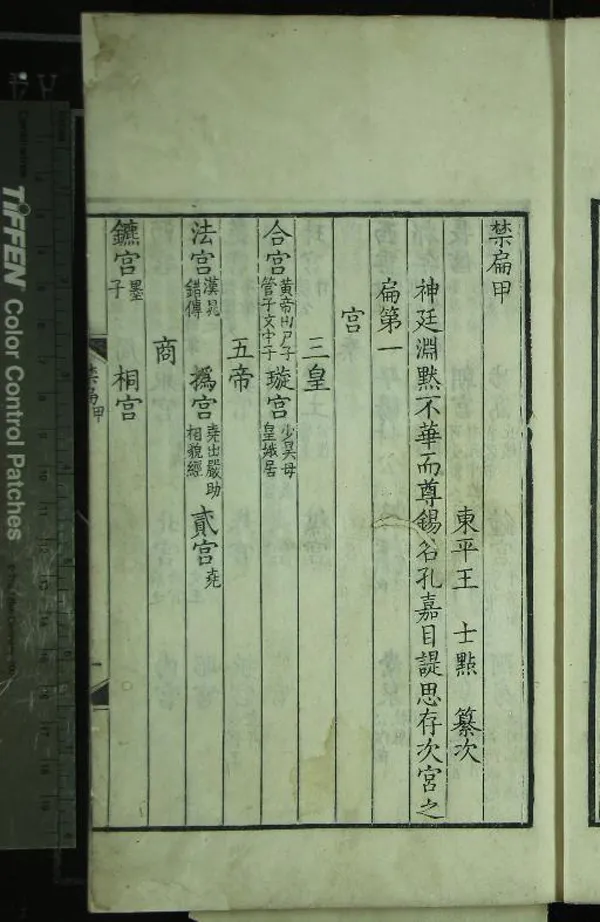 禁扁甲
東平王　士點　纂次
神廷淵默不華而尊錫名孔嘉目諟思存次宮之
扁第一
宮
三皇
合宮 黄帝出尸子管子文中子 璇宮 少昊母皇娥居
五帝
法宮 漢晁錯傳 撝宮 堯出嚴助相貌經 貳宮 堯
商
鑣宮 墨子 桐宮
禁扁甲
TIFFEN Color Control Patches